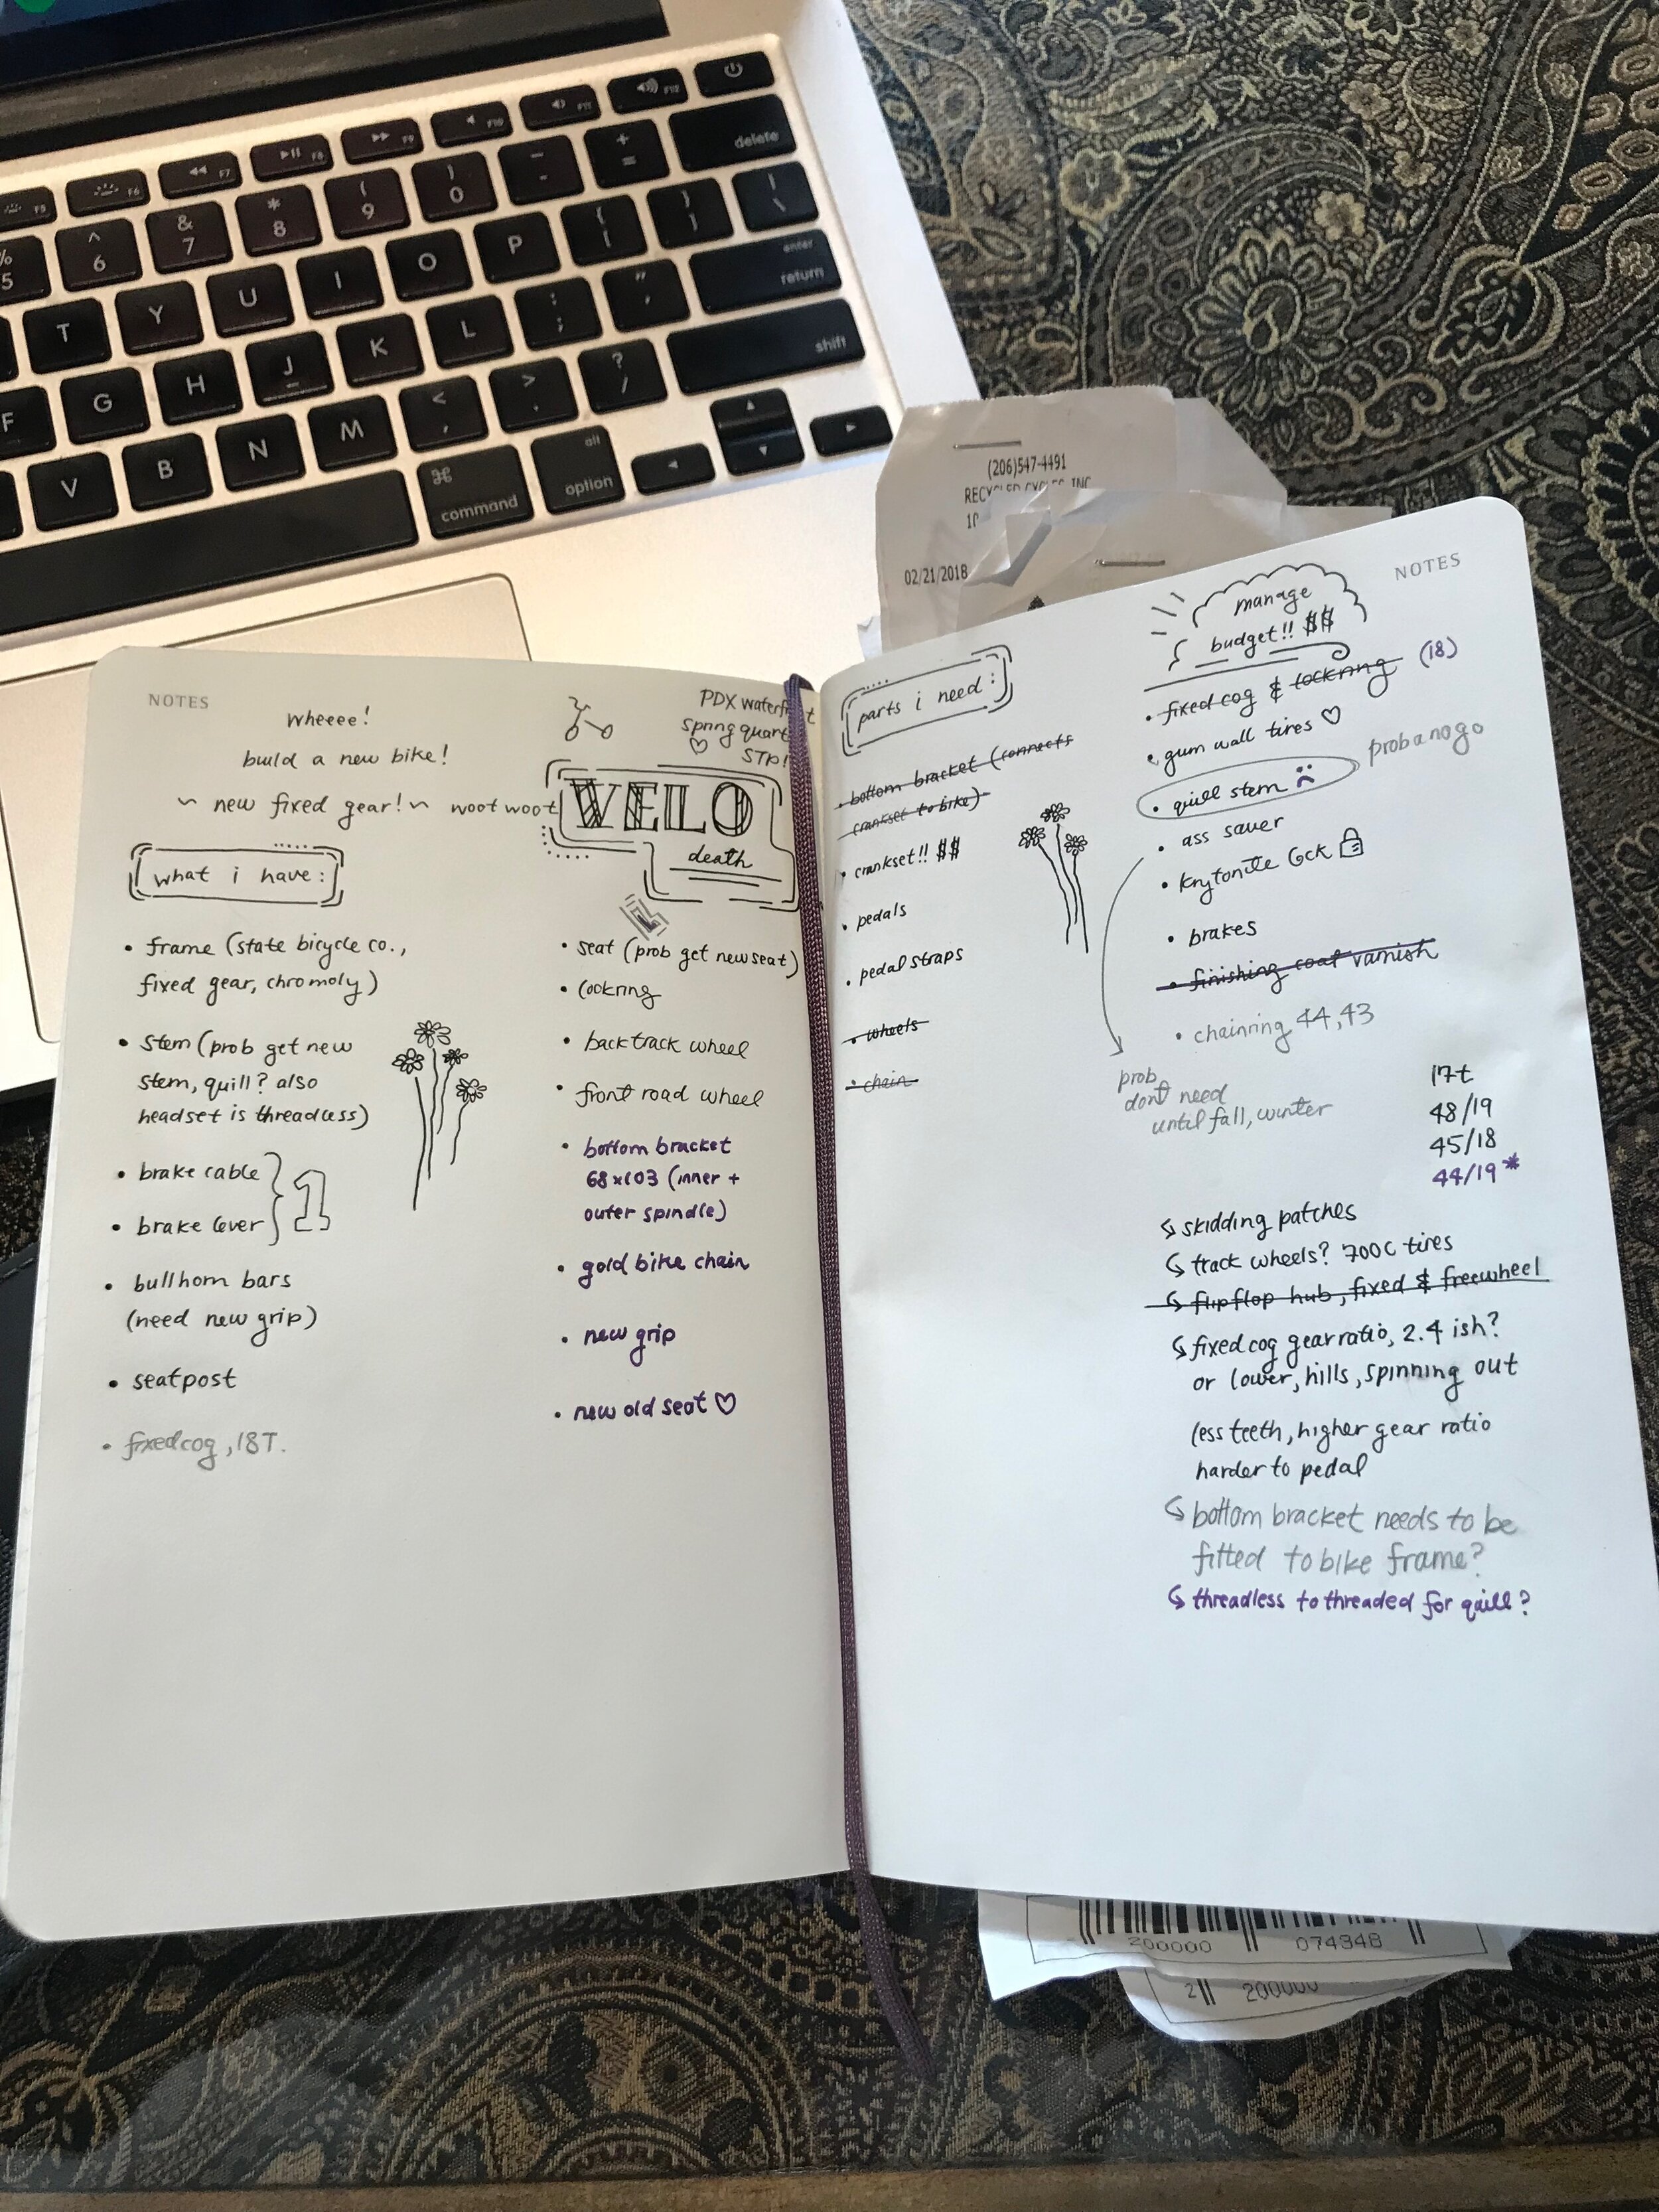 F5
F6
F7
F8
F9
F10
F11
F12
%
5
^
6
&
7
*
8
(
9
)
0
-
+
=
delete
T
Y
U
I
O
P
{
[
}
]
|
\
F
G
H
J
K
L
:
;
"
'
enter
return
V
B
N
M
<
,
>
.
?
/
shift
⌘
command
alt
option
(206)547-4491
RECYCLED CYCLES INC
02/21/2018
NOTES
wheeee!
build a new bike!
~ new fixed gear! ~ woot woot
PDX waterfront
spring quart
♡ STP!
VELO
death
what i have:
• frame (state bicycle co.,
fixed gear, chromoly)
• stem (prob get new
stem, quill? also
headset is threadless)
• brake cable
• brake lever
1
• bullhorn bars
(need new grip)
• seatpost
• fixed cog, 18T.
• seat (prob get new seat)
• lockring
• back track wheel
• front road wheel
• bottom bracket
68x103 (inner +
outer spindle)
• gold bike chain
• new grip
• new old seat ♡
NOTES
manage
budget!! $$
parts i need:
• bottom bracket (connects
crankset to bike)
• crankset!! $$
• pedals
• pedal straps
• wheels
• chain
• fixed cog & lockring (18)
• gum wall tires ♡
• quill stem
prob a no go
• ass saver
• krytonite lock
• brakes
• finishing coat varnish
• chainring 44,43
prob
dont need
until fall, winter
17t
48/19
45/18
44/19*
↳ skidding patches
↳ track wheels? 700c tires
↳ flip flop hub, fixed & freewheel
↳ fixed cog gear ratio, 2.4 ish?
or lower, hills, spinning out
less teeth, higher gear ratio
harder to pedal
↳ bottom bracket needs to be
fitted to bike frame?
↳ threadless to threaded for quill?
200000 074348
2 200000